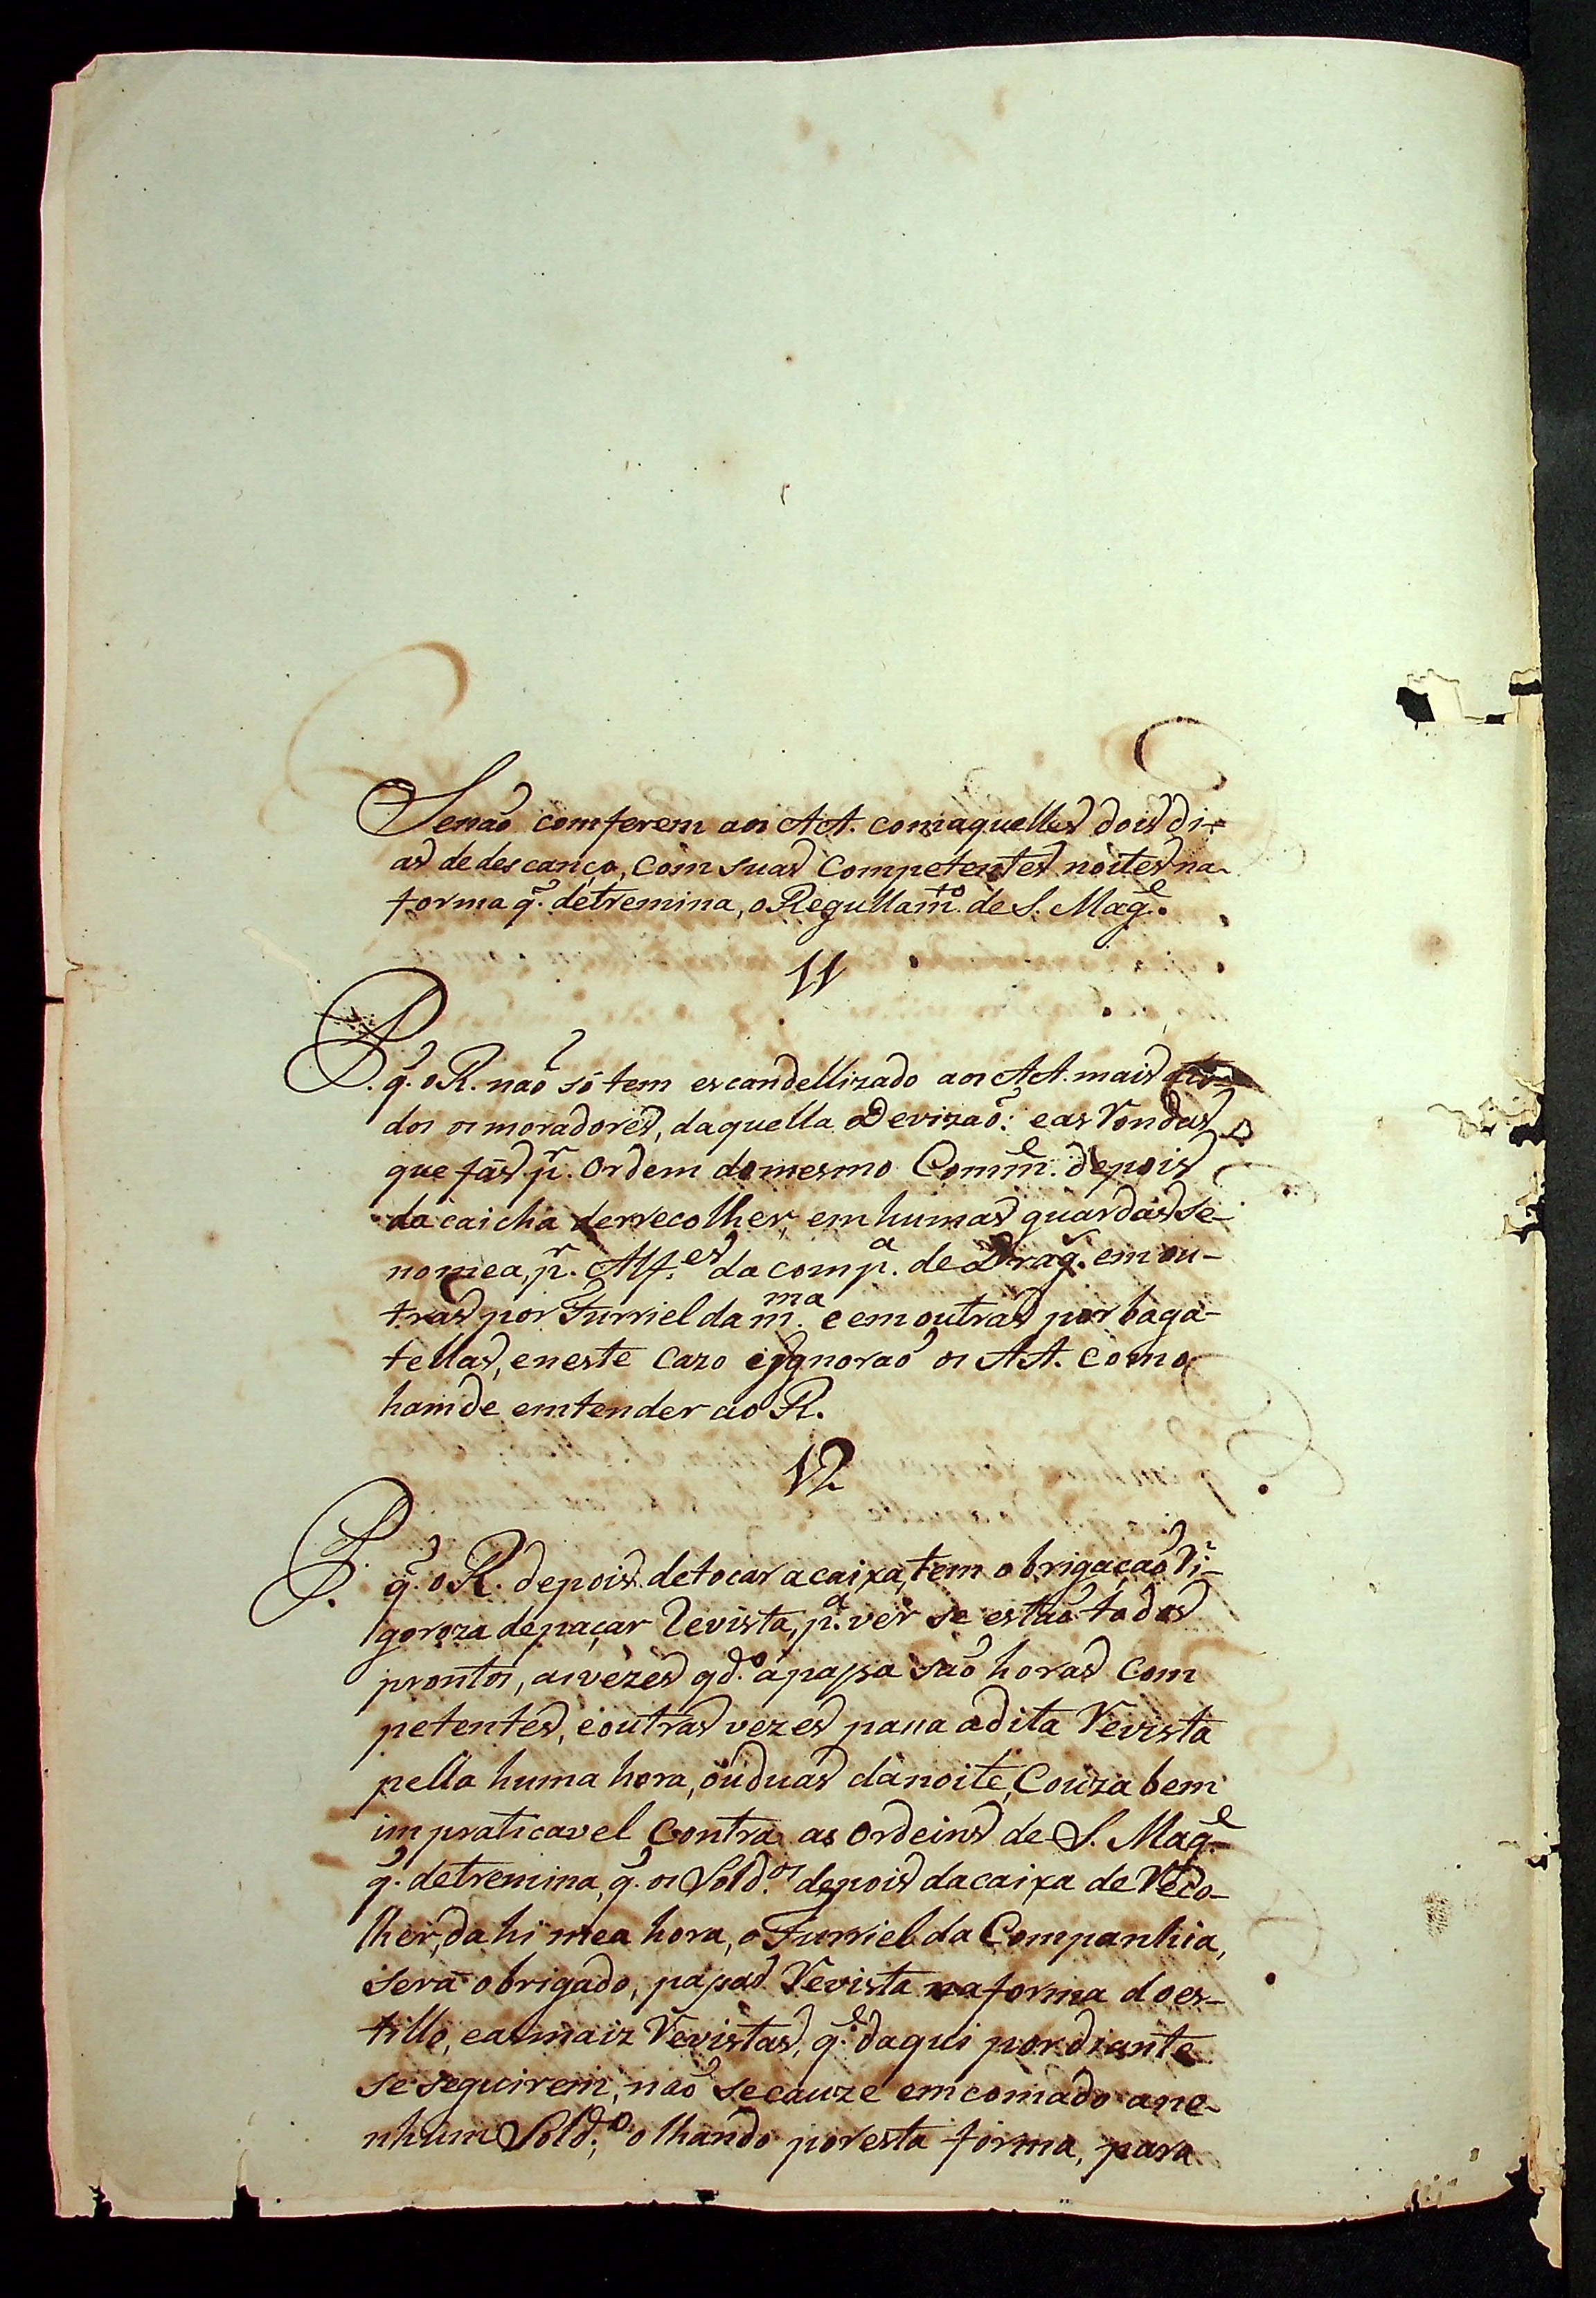 Senaõ comferem aos AA. com aquelles dois di-
as de descanço, com suas Competentes noites na
forma q̃. detremina, o Regullam.to de S. Mag.e
11
P. q̃. o R. naõ só tem escandellizado aos AA. mais a to-
dos os moradores, daquella Devizaõ: e as Rondas
que fás p.r Ordem do mesmo Comm.e depois
da caicha derrecolher, em humas guardas se
nomea, p.r Alf.es da comp.a de Drag. em ou-
tras por Furriel da m.ma e em outras por baga-
tellas, e neste Cazo ignoraõ os AA. como
hamde emtender ao R.
12
P. q̃. o R. depois de tocar a caixa, tem obrigaçaõ Ri-
goroza de paçar Revista, p.a ver se estaõ todos
prontos, as vezes qd.o a passa saõ horas Com
petentes, e outras vezes passa a dita Revista
pella huma hora, ou duas da noite, Couza bem
impraticavel Contra as Ordeins de S. Mag.e
q̃. detremina, q̃. os Sold.os depois da caixa de Reco-
lher, da hi mea hora, o Furriel da Companhia,
será obrigado, passar Revista na forma do es-
tillo, e as maiz Revistas, q̃. daqui por diante
se seguirem, naõ se cauze emcomado a ne-
nhum Sold.o olhando por esta forma, para